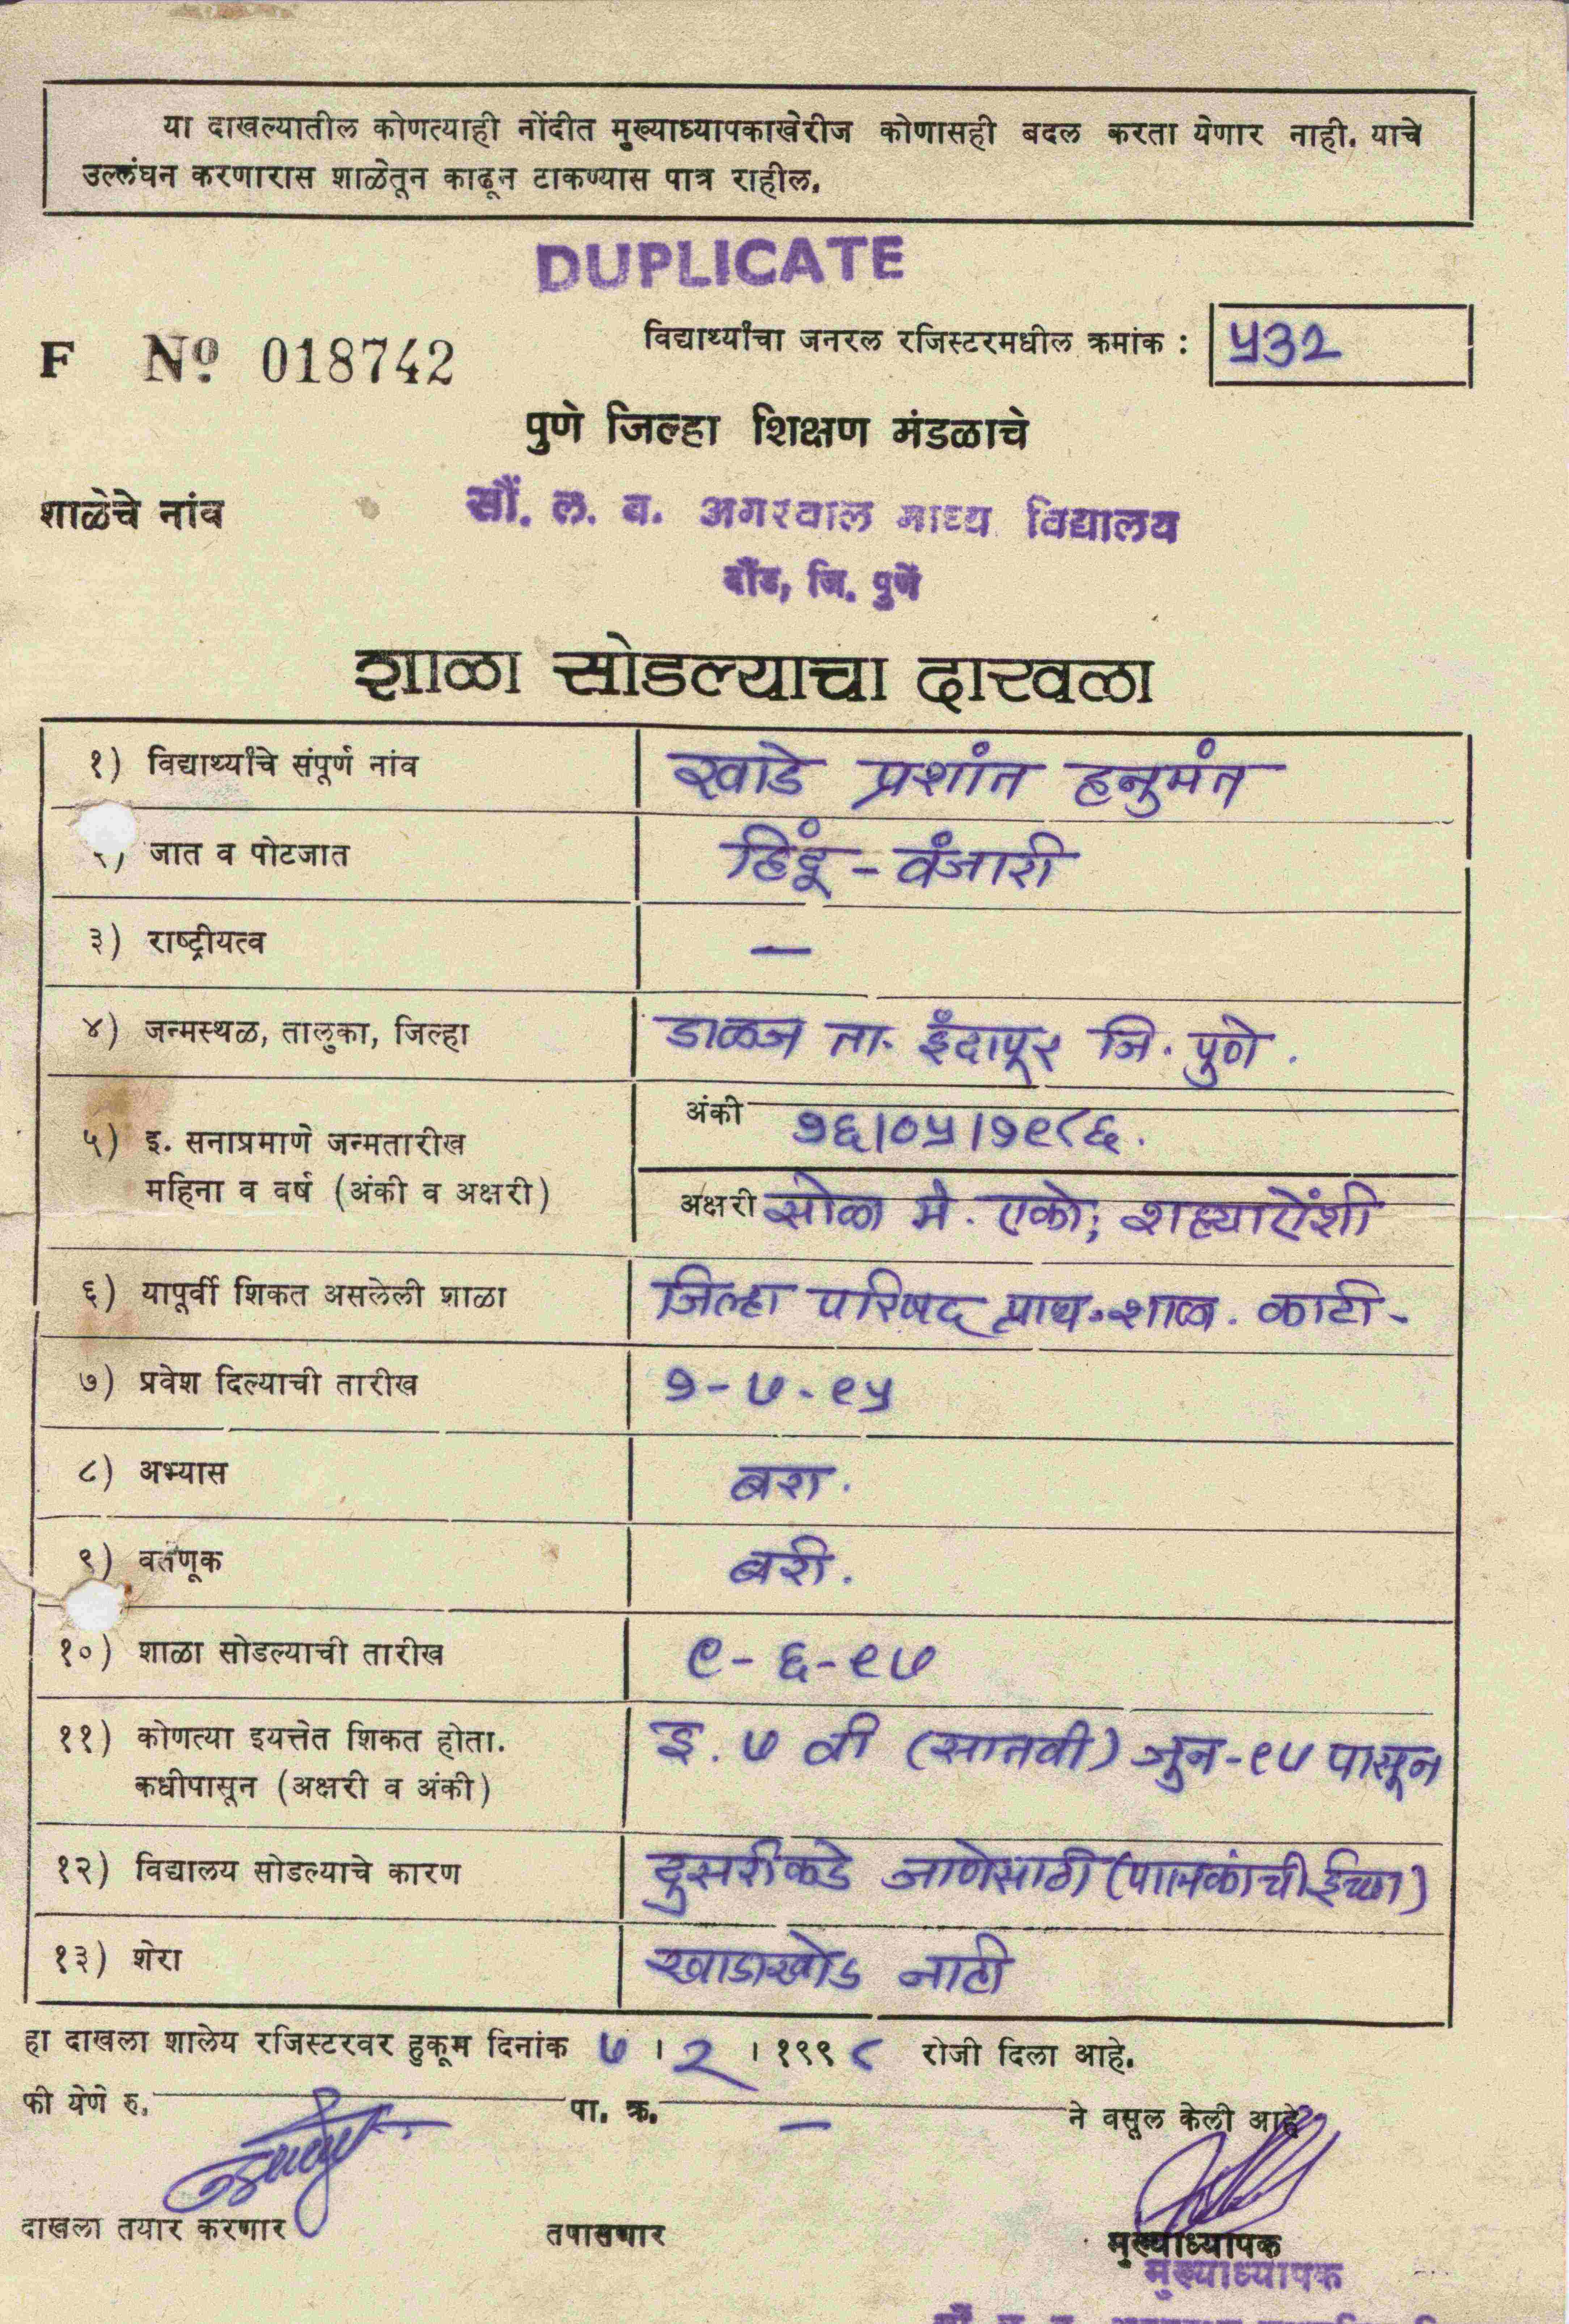 या दाखल्यातील कोणत्याही नोंदीत मुख्याध्यापकाखेरीज कोणासही बदल करता येणार नाही. याचे
उल्लंघन करणारास शाळेतून काढून टाकण्यास पात्र राहील.
DUPLICATE
F Nº 018742
विद्यार्थ्यांचा जनरल रजिस्टरमधील क्रमांक : ५३२
पुणे जिल्हा शिक्षण मंडळाचे
शाळेचे नांव सौ. ल. ब. अगरवाल माध्य विद्यालय
दौंड, जि. पुणे
शाळा सोडल्याचा दाखला
१) विद्यार्थ्यांचे संपूर्ण नांव खाडे प्रशांत हनुमंत
२) जात व पोटजात हिंदू - वंजारी
३) राष्ट्रीयत्व —
४) जन्मस्थळ, तालुका, जिल्हा डाळज ता. इंदापूर जि. पुणे .
५) इ. सनाप्रमाणे जन्मतारीख
महिना व वर्ष (अंकी व अक्षरी)
अंकी १६।०५।१९८६.
अक्षरी सोळा मे. एको; शहाऐंशी
६) यापूर्वी शिकत असलेली शाळा जिल्हा परिषद प्राथ. शाळा. काटी -
७) प्रवेश दिल्याची तारीख १-७-९५
८) अभ्यास बरा .
९) वर्तणूक बरी .
१०) शाळा सोडल्याची तारीख ९-६-९७
११) कोणत्या इयत्तेत शिकत होता.
कधीपासून (अक्षरी व अंकी)
इ. ७ वी (सातवी) जुन-९७ पासून
१२) विद्यालय सोडल्याचे कारण दुसरीकडे जाणेसाठी (पालकांची ईच्छा)
१३) शेरा खाडाखोड नाही
हा दाखला शालेय रजिस्टरवर हुकूम दिनांक ७ । २ । १९९८ रोजी दिला आहे.
फी येणे रु. पा. क्र. — ने वसूल केली आहे
दाखला तयार करणार तपासणार मुख्याध्यापक
मुख्याध्यापक